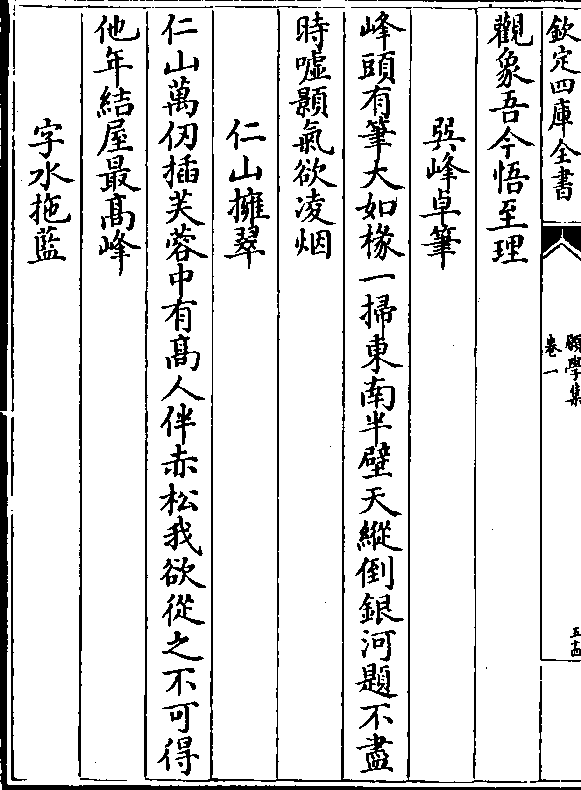 欽定四庫全書
願學集
卷一
五十四
觀象吾今悟至理
巽峰卓筆
峰頭有筆大如椽一掃東南半壁天縱倒銀河題不盡
時噓顥氣欲凌烟
仁山擁翠
仁山萬仞插芙蓉中有髙人伴赤松我欲從之不可得
他年結屋最髙峰
字水拖藍